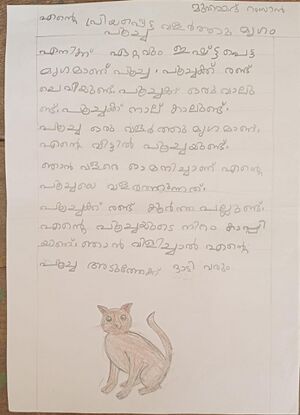 മുഹമ്മദ് റംസാൻ
എന്റെ പ്രിയപ്പെട്ട വളർത്തു മൃഗം
പൂച്ച
എനിക്ക് ഏറ്റവും ഇഷ്ട്ട പെട്ട
മൃഗമാണ് പൂച്ച. പൂച്ചക്ക് രണ്ട്
ചെവിയുണ്ട്. പൂച്ചക്ക് ഒരു വാലു
ണ്ട്. പൂച്ചക്ക് നാല് കാലുണ്ട്.
പൂച്ച ഒരു വളർത്തു മൃഗമാണ്.
എന്റെ വീട്ടിൽ പൂച്ചയുണ്ട്.
ഞാൻ വളരെ ഓമനിച്ചാണ് എന്റെ
പൂച്ചയെ വളർത്തുന്നത്.
പൂച്ചക്ക് രണ്ട് കൂർത്ത പല്ലുണ്ട്.
എന്റെ പൂച്ചയുടെ നിറം കാപ്പി
യാണ്. ഞാൻ വിളിച്ചാൽ എന്റെ
പൂച്ച അടുത്തേക്ക് ഓടി വരും.